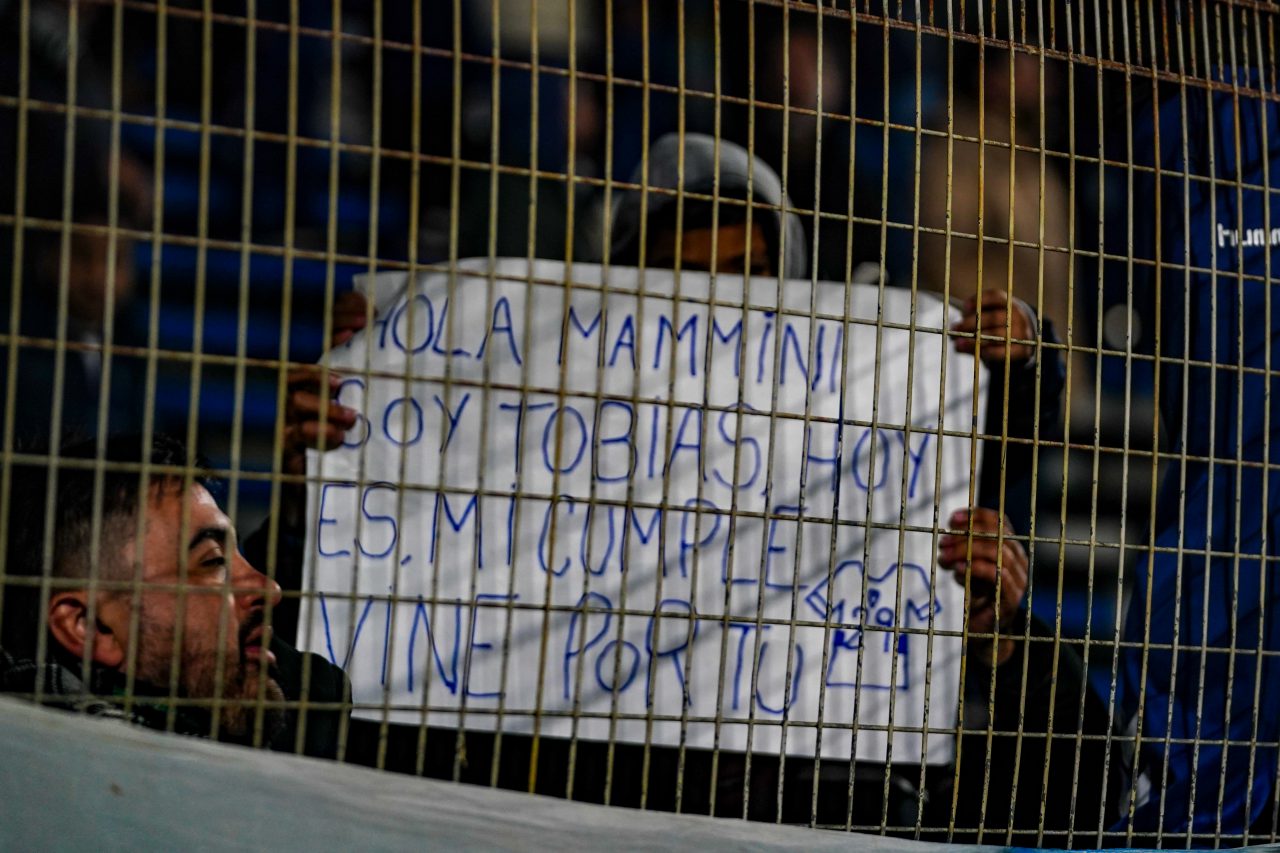 HOLA MAMMINI
SOY TOBIAS, HOY
ES, MI CUMPLE
VINE POR TU